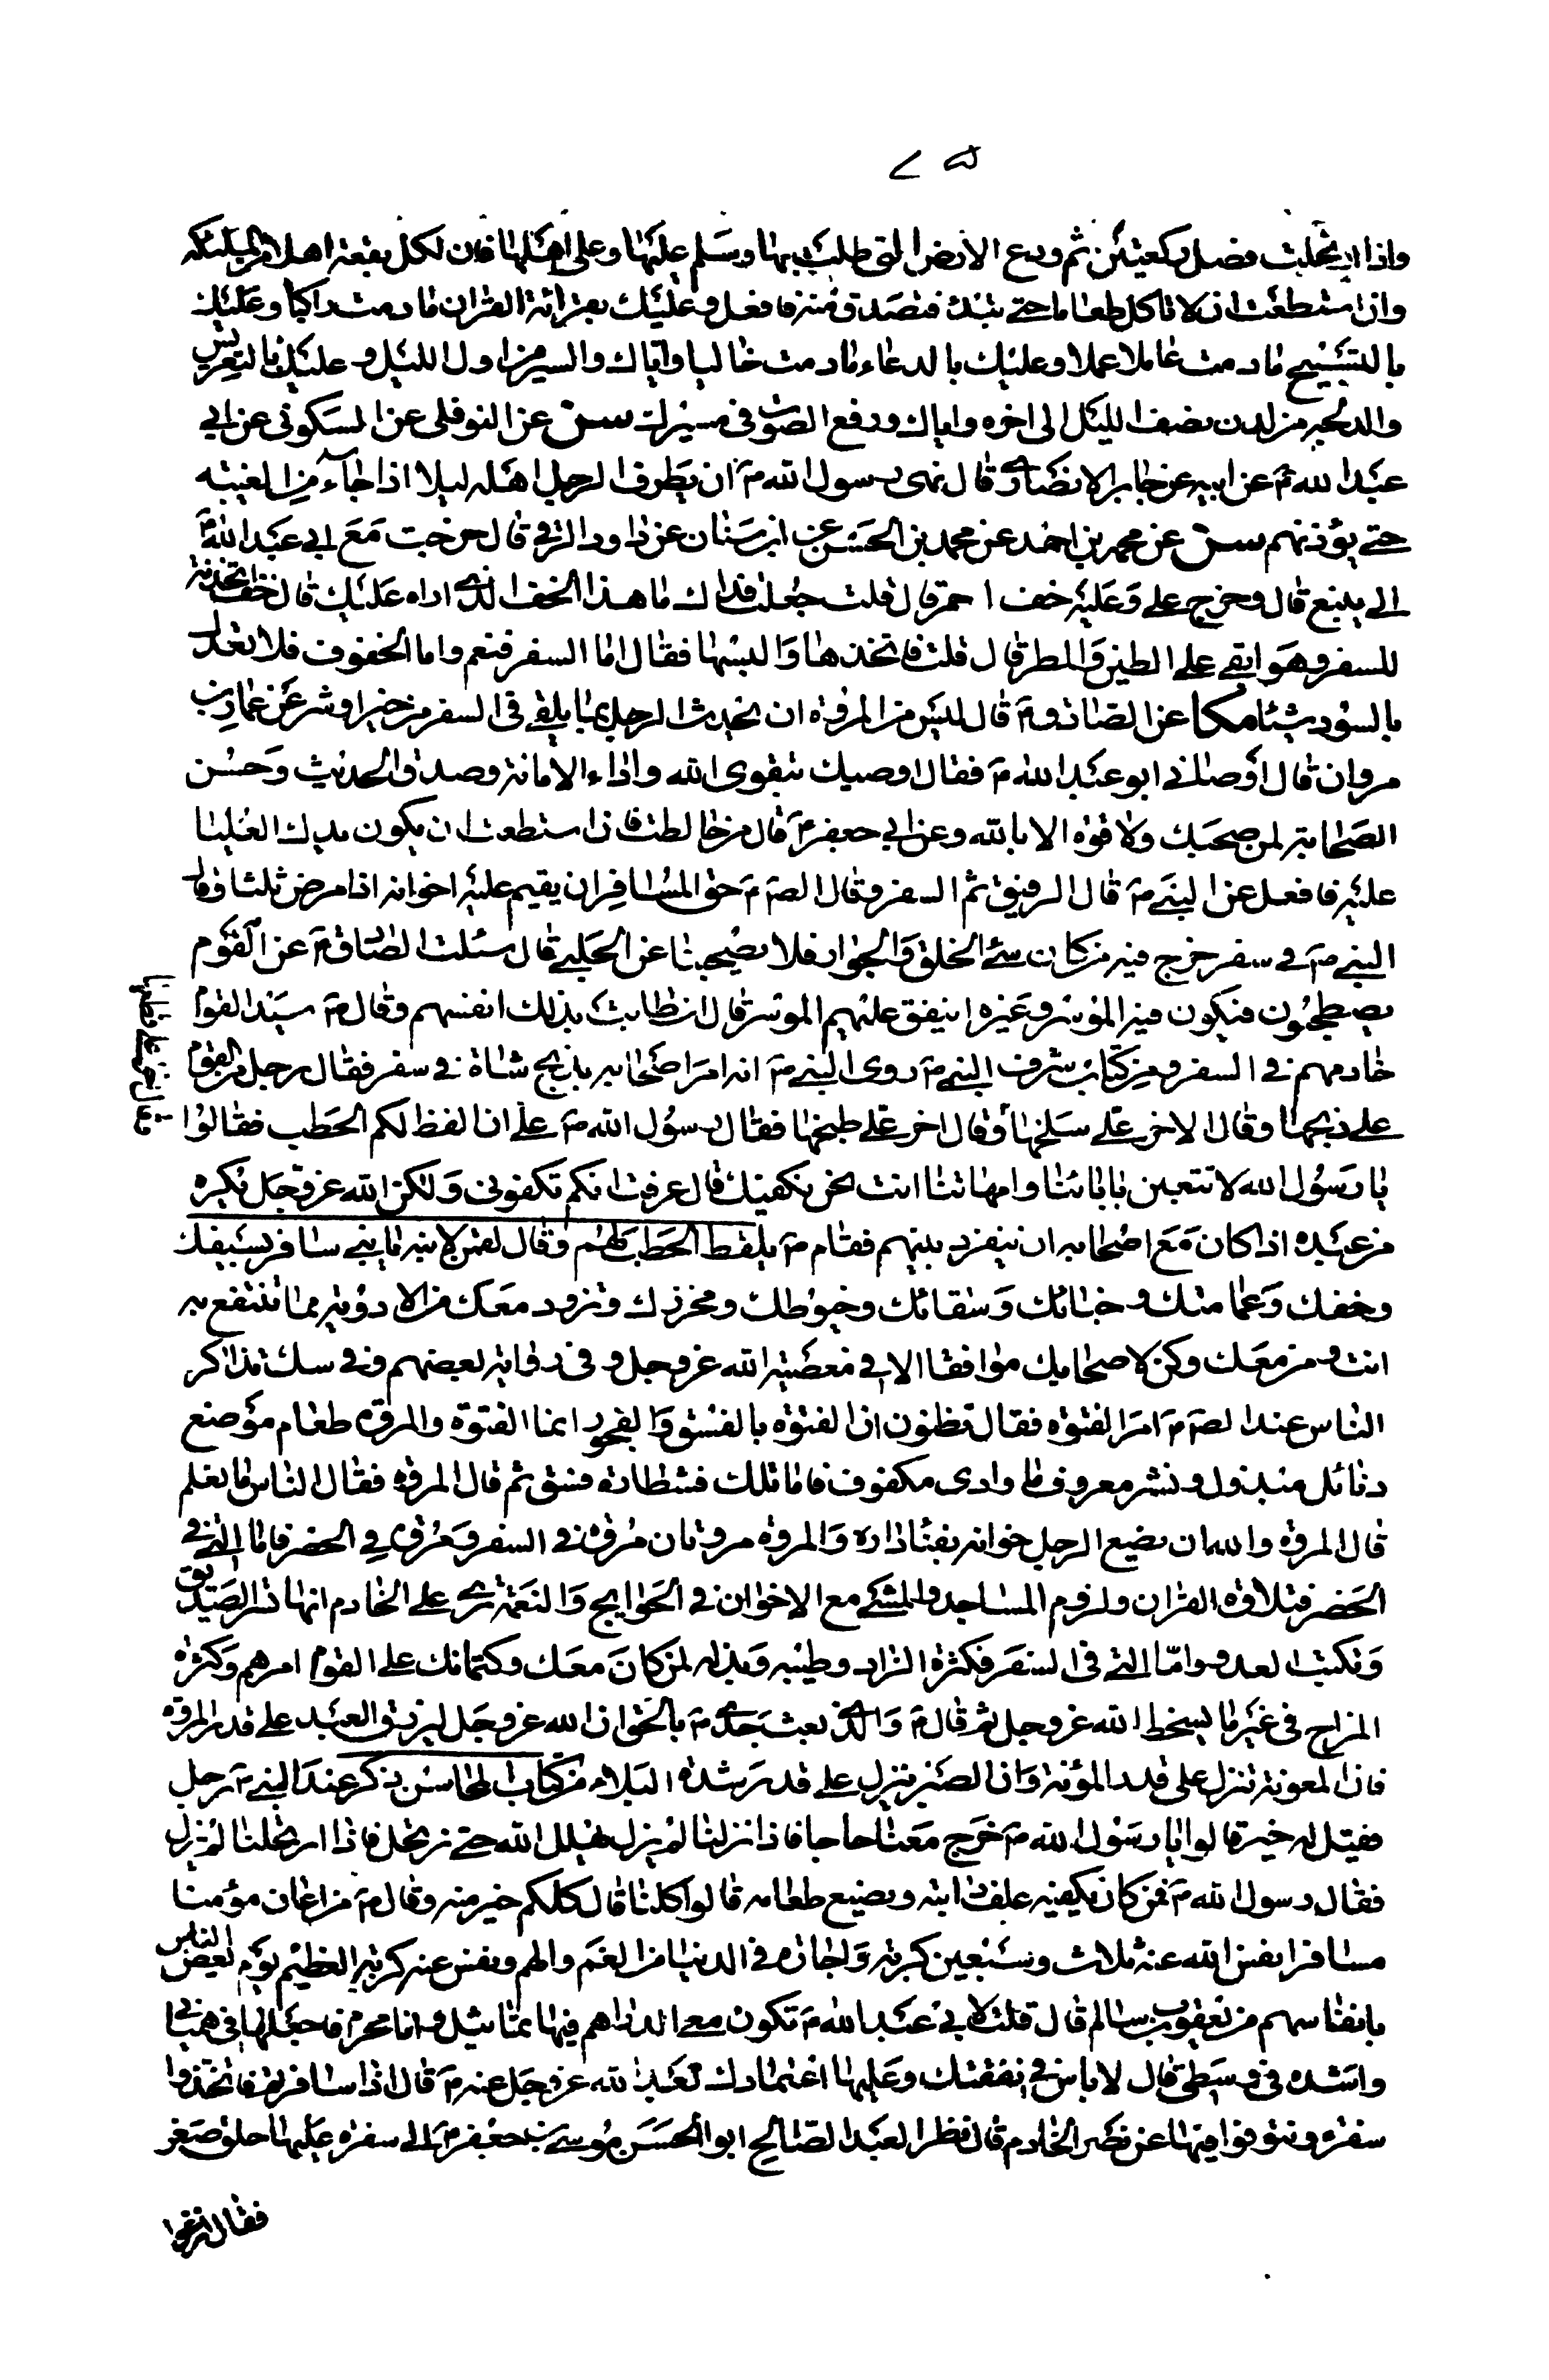 واذا ارتحلت فصل ركعتين ثم ودع الارض التي حللت بها وسلم عليها وعلى اهلها فان لكل بقعة اهلا من الملئكة
وان استطعت ان لا تاكل طعاما حتى تبدء فتصدق منه فافعل وعليك بقرائة القران ما دمت راكبا وعليك
بالتسبيح ما دمت عاملا عملا وعليك بالدعاء ما دمت خاليا واياك والسير من اول الليل و عليك بالتعريس
والدلجة من لدن نصف الليل الى اخره واياك ورفع الصوت في مسيرك سن عن النوفلى عن السكوني عن ابي
عبد الله عن ابيه عن جابر الانصارى قال نهى رسول الله ان يطرق الرجل اهله ليلا اذا جاء من الغيبة
حتى يؤذنهم سن عن محمد بن احمد عن محمد بن الحسن عن ابن سنان عن داود الرقي قال خرجت مع ابي عبد الله
الى ينبع قال وخرج على وعليه خف احمر قال قلت جعلت فداك ما هذا الخف الذي اراه عليك قال خف اتخذته
للسفر وهو ابقى على الطين والمطر قال قلت فاتخذها والبسها فقال اما السفر فنعم واما الخفوف فلا تعدل
بالسود شيئا مكا عن الصادق قال ليس من المروة ان يحدث الرجل بما يلقى في السفر من خير او شر عن عمار بن
مروان قال اوصاني ابو عبد الله فقال اوصيك بتقوى الله واداء الامانة وصدق الحديث وحسن
الصحابة لمن صحبك ولا قوة الا بالله وعن ابي جعفر قال من خالطت فان استطعت ان يكون يدك العليا
عليه فافعل عن النبي قال الرفيق ثم السفر وقال الص حق المسافر ان يقيم عليه اخوانه اذا مرض ثلثا وقال
النبي في سفر خرج فيه من كان سئ الخلق والجوار فلا يصحبنا عن الحلبي قال سئلت الصادق عن القوم
يصطحبون فيكون فيه الموسر وغيره اينفق عليهم الموسر قال ان طابت بذلك انفسهم وقال سيد القوم
خادمهم في السفر ومن كتاب شرف النبي روى النبي انه امر اصحابه بذبح شاة في سفر فقال رجل من القوم
على ذبحها وقال الاخر على سلخها وقال اخر على طبخها فقال رسول الله على ان القط لكم الحطب فقالوا
يا رسول الله لا تتعبن بابائنا وامهاتنا انت نحن نكفيك قال عرفت انكم تكفوني ولكن الله عز وجل يكره
من عبده اذا كان مع اصحابه ان ينفرد بينهم فقام يلقط الحطب لهم وقال لقمن لابنه يا بني سافر بسيفك
وخفك وعمامتك و خبائك وسقائك وخيوطك ومخرزك وتزود معك من الادوية مما تنتفع به
انت و من معك وكن لاصحابك موافقا الا في معصية الله عز وجل و في رواية بعضهم وفرسك تذاكر
الناس عند الص امر الفتوة فقال تظنون ان الفتوة بالفسق والفجور انما الفتوة والمروة طعام موضع
ونائل مبذول و نشر معروف واذى مكفوف فاما تلك فشطارة وفسق ثم قال ما المروة فقال الناس ما نعلم
قال المروة والله ان يضع الرجل خوانه بفناء داره والمروة مروتان مروة في السفر ومروة في الحضر فاما التي في
الحضر فتلاوة القران ولزوم المساجد والمشى مع الاخوان في الحوايج والنعمة ترى على الخادم انها تسر الصديق
وتكبت العدو واما التي في السفر فكثرة الزاد وطيبه وبذله لمن كان معك وكتمانك على القوم امرهم وكثرة
المزاح في غير ما يسخط الله عز وجل ثم قال والذي بعث جدى بالحق ان الله عز وجل ليرزق العبد على قدر المروة
فان المعونة تنزل على قدر المؤنة وان الصبر ينزل على قدر شدة البلاء من كتاب المحاسن ذكر عند النبي رجل
فقيل له خير قالوا يا رسول الله خرج معنا حاجا فاذا نزلنا لم يزل يهلل الله حتى نرتحل فاذا ارتحلنا لم يزل
فقال رسول الله فمن كان يكفيه علف دابته ويصنع طعامه قالوا كلنا قال كلكم خير منه وقال من اعان مؤمنا
مسافرا نفس الله عنه ثلاث وسبعين كربة واجاره في الدنيا من الغم والهم ونفس عنه كربه العظيم يوم يعض الناس
بانفاسهم من يعقوب بن سالم قال قلت لابي عبد الله تكون معي الدراهم فيها تماثيل وانا محرم فاجعلها في همياني
واشده في وسطى قال لا باس هي نفقتك وعليها اعتمادك بعد الله عز وجل عنه قال اذا سافرتم فاتخذوا
سفرة وتنوقوا فيها عن نصر الخادم قال نظر العبد الصالح ابو الحسن موسى بن جعفر الى سفرة عليها حلق صفر
فقال انزعوا